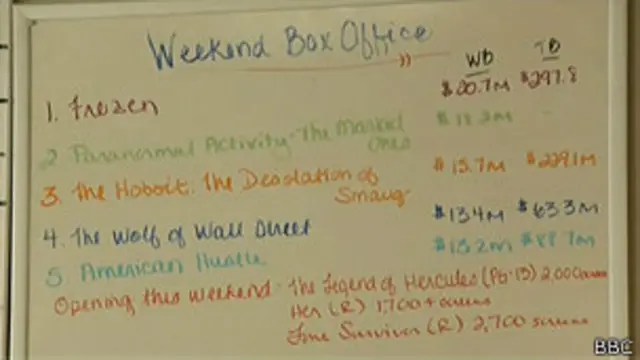 Weekend Box Office
WB TD
1. Frozen $20.7M $297.8
2. Paranormal Activity-The Marked Ones $18.2M -
3. The Hobbit: The Desolation of Smaug $15.7M $229.1M
4. The Wolf of Wall Street $13.4M $63.3M
5. American Hustle $13.2M $88.7M
Opening this weekend- The Legend of Hercules (PG-13) 2,000
Her (R) 1,700+ screens
Survivor (R) 2,700 screens
BBC